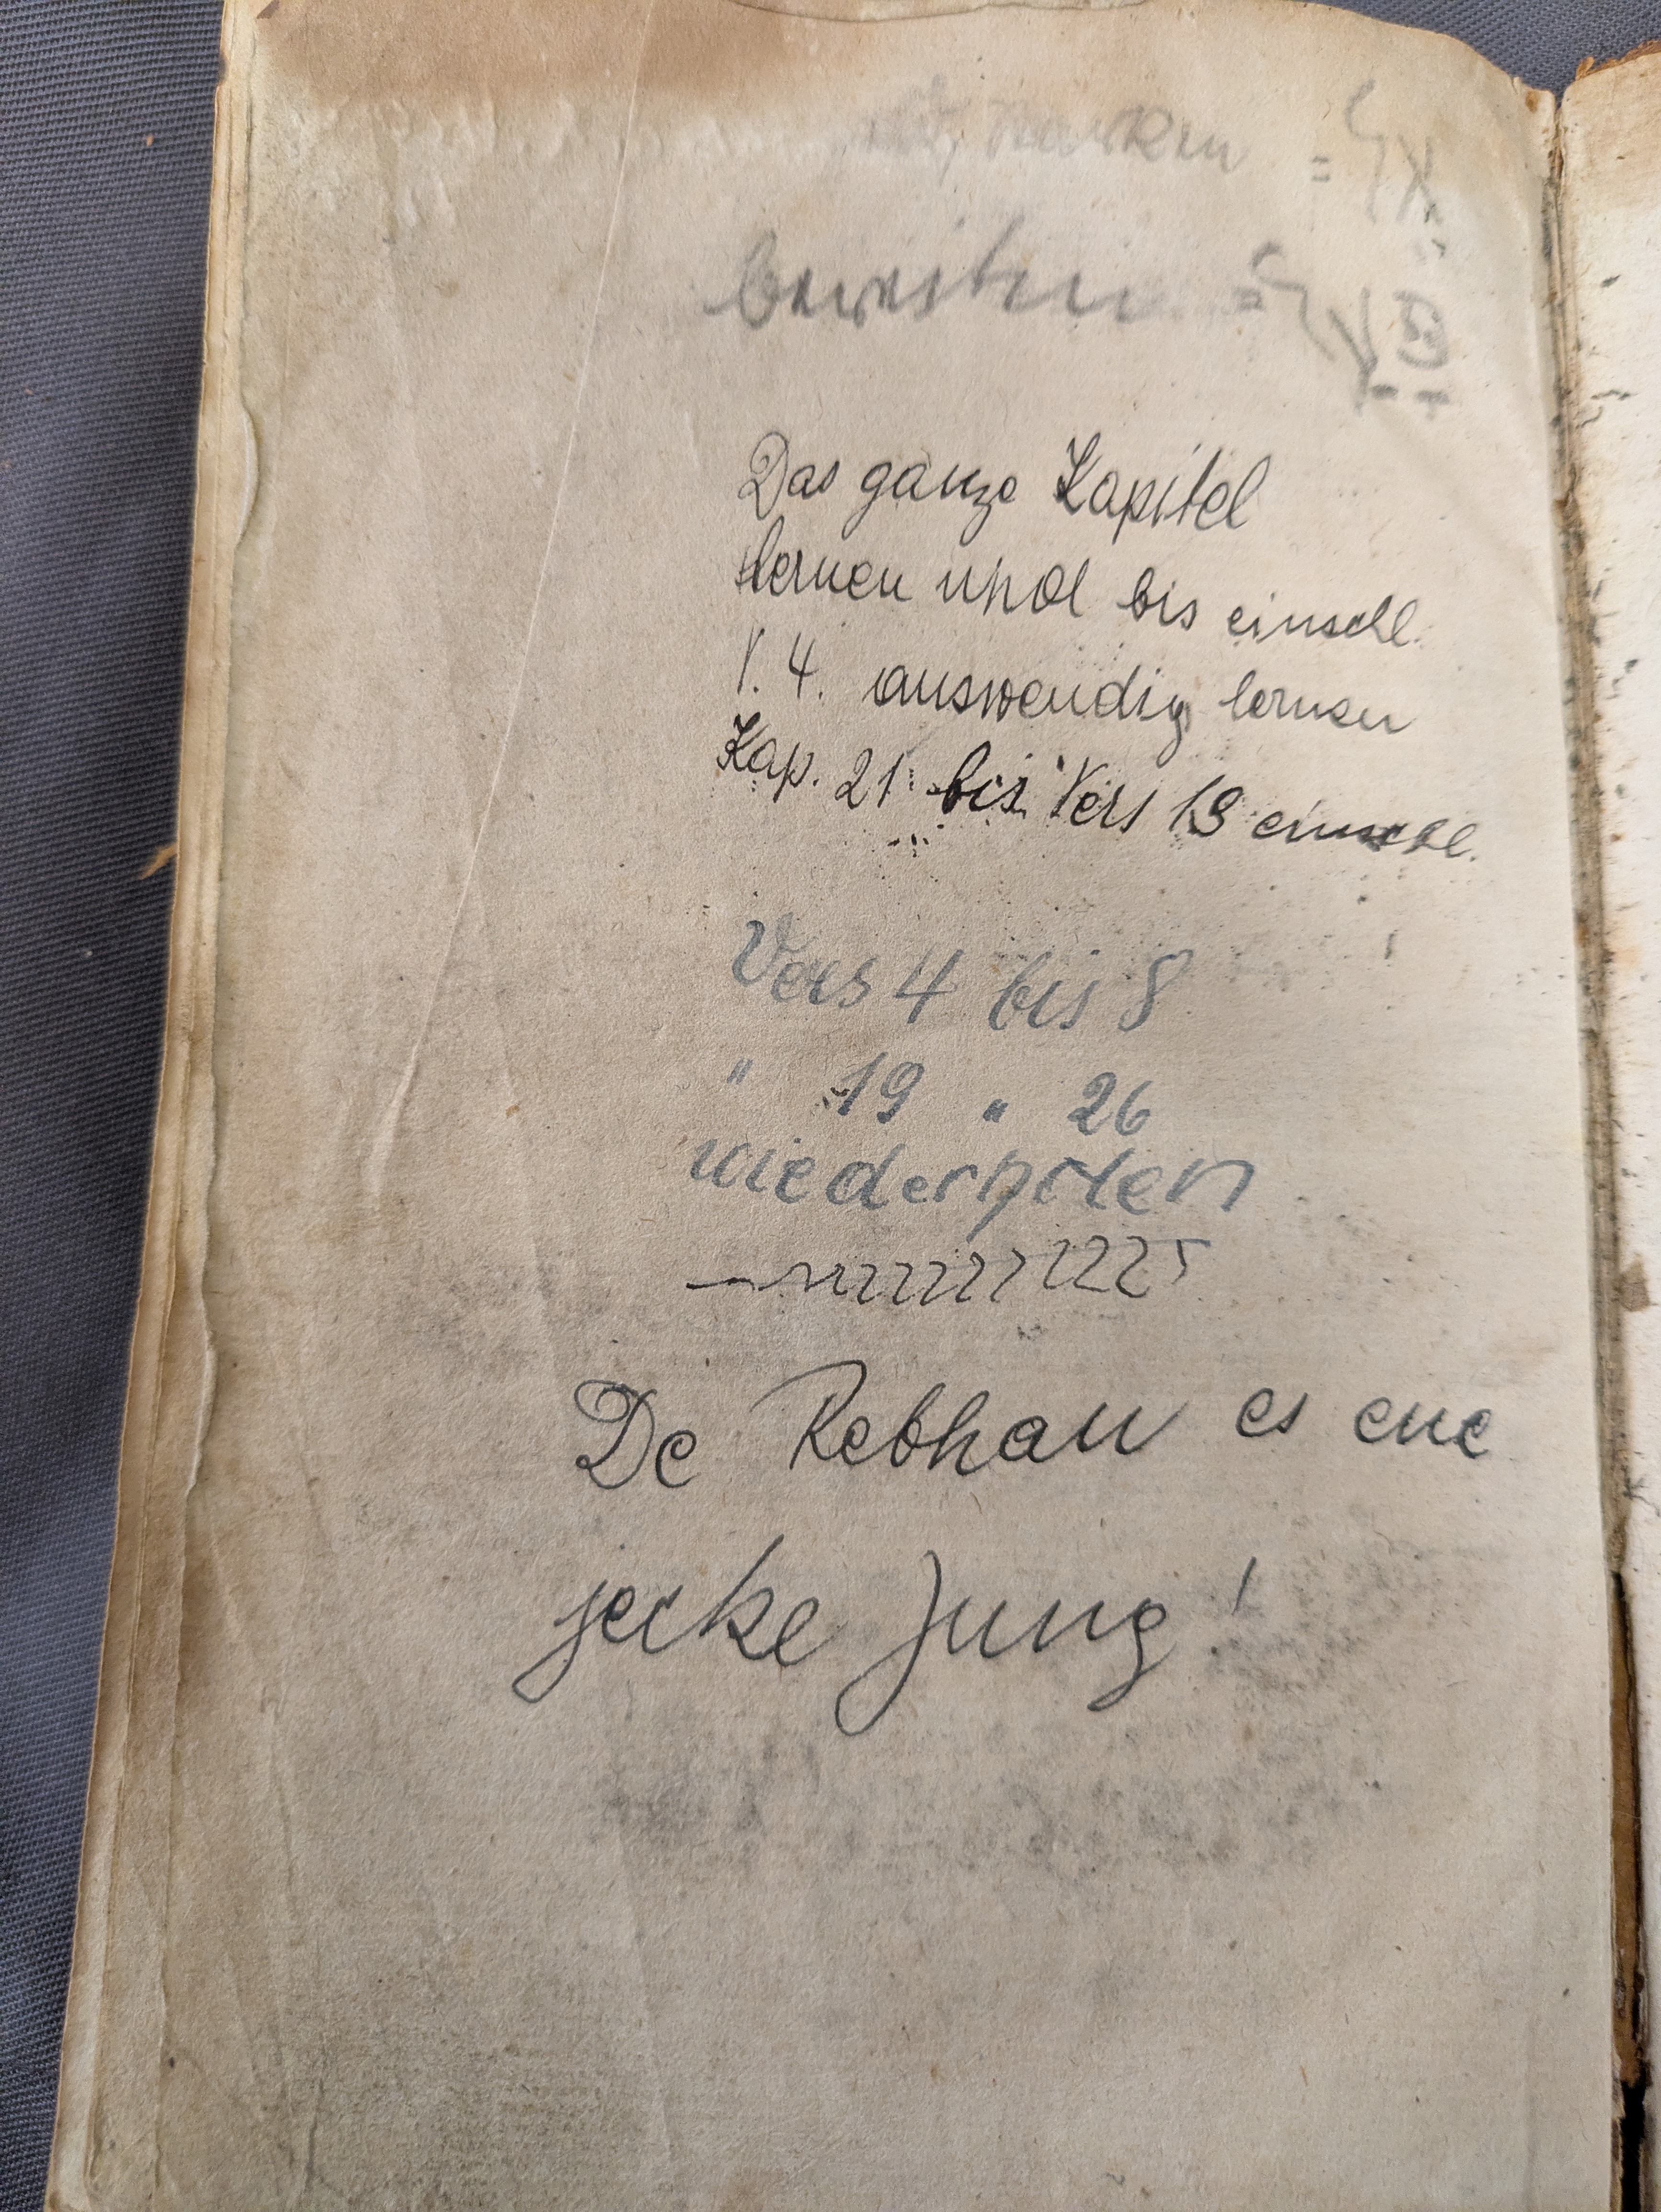 Das ganze Kapitel
lernen und bis einschl.
V. 4. auswendig lernen
Kap. 21 bis Vers 13 einschl.
Vers 4 bis 8
" 19 " 26
wiederholen
De Rebhan es ene
jecke Jung!